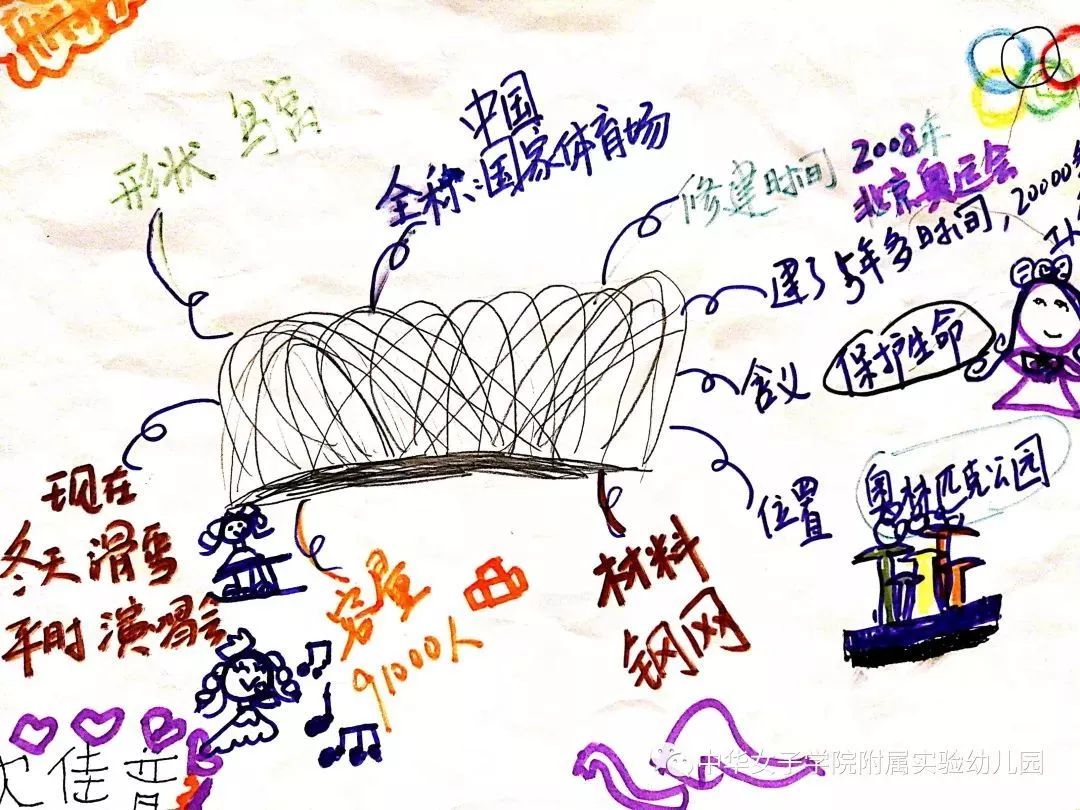 形状 鸟窝
中国
全称:国家体育场
修建时间
2008年
北京奥运会
建了5年多时间,20000多
工人
含义
保护生命
位置
奥林匹克公园
材料
钢网
容量
91000人
现在
冬天滑雪
平时演唱会
佳音
中华女子学院附属实验幼儿园